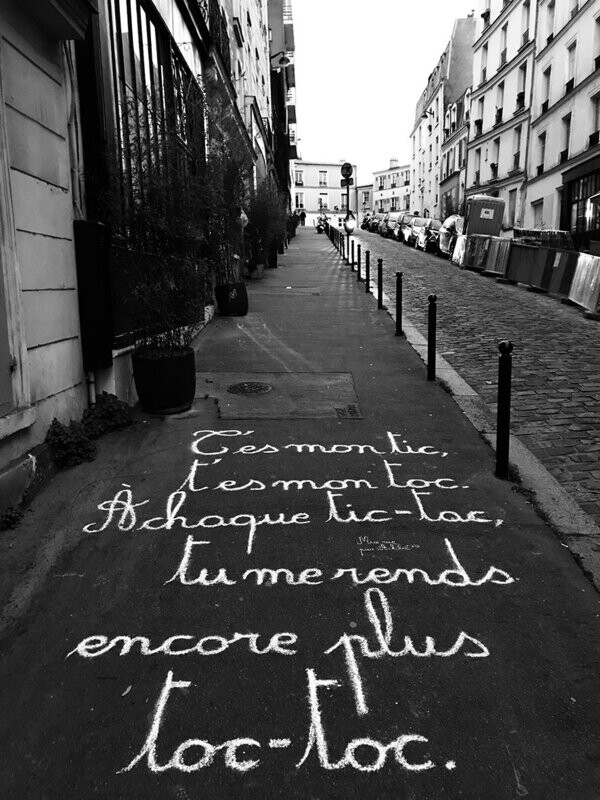 T'es mon tic,
t'es mon toc.
À chaque tic-tac,
tu me rends
encore plus
toc-toc.